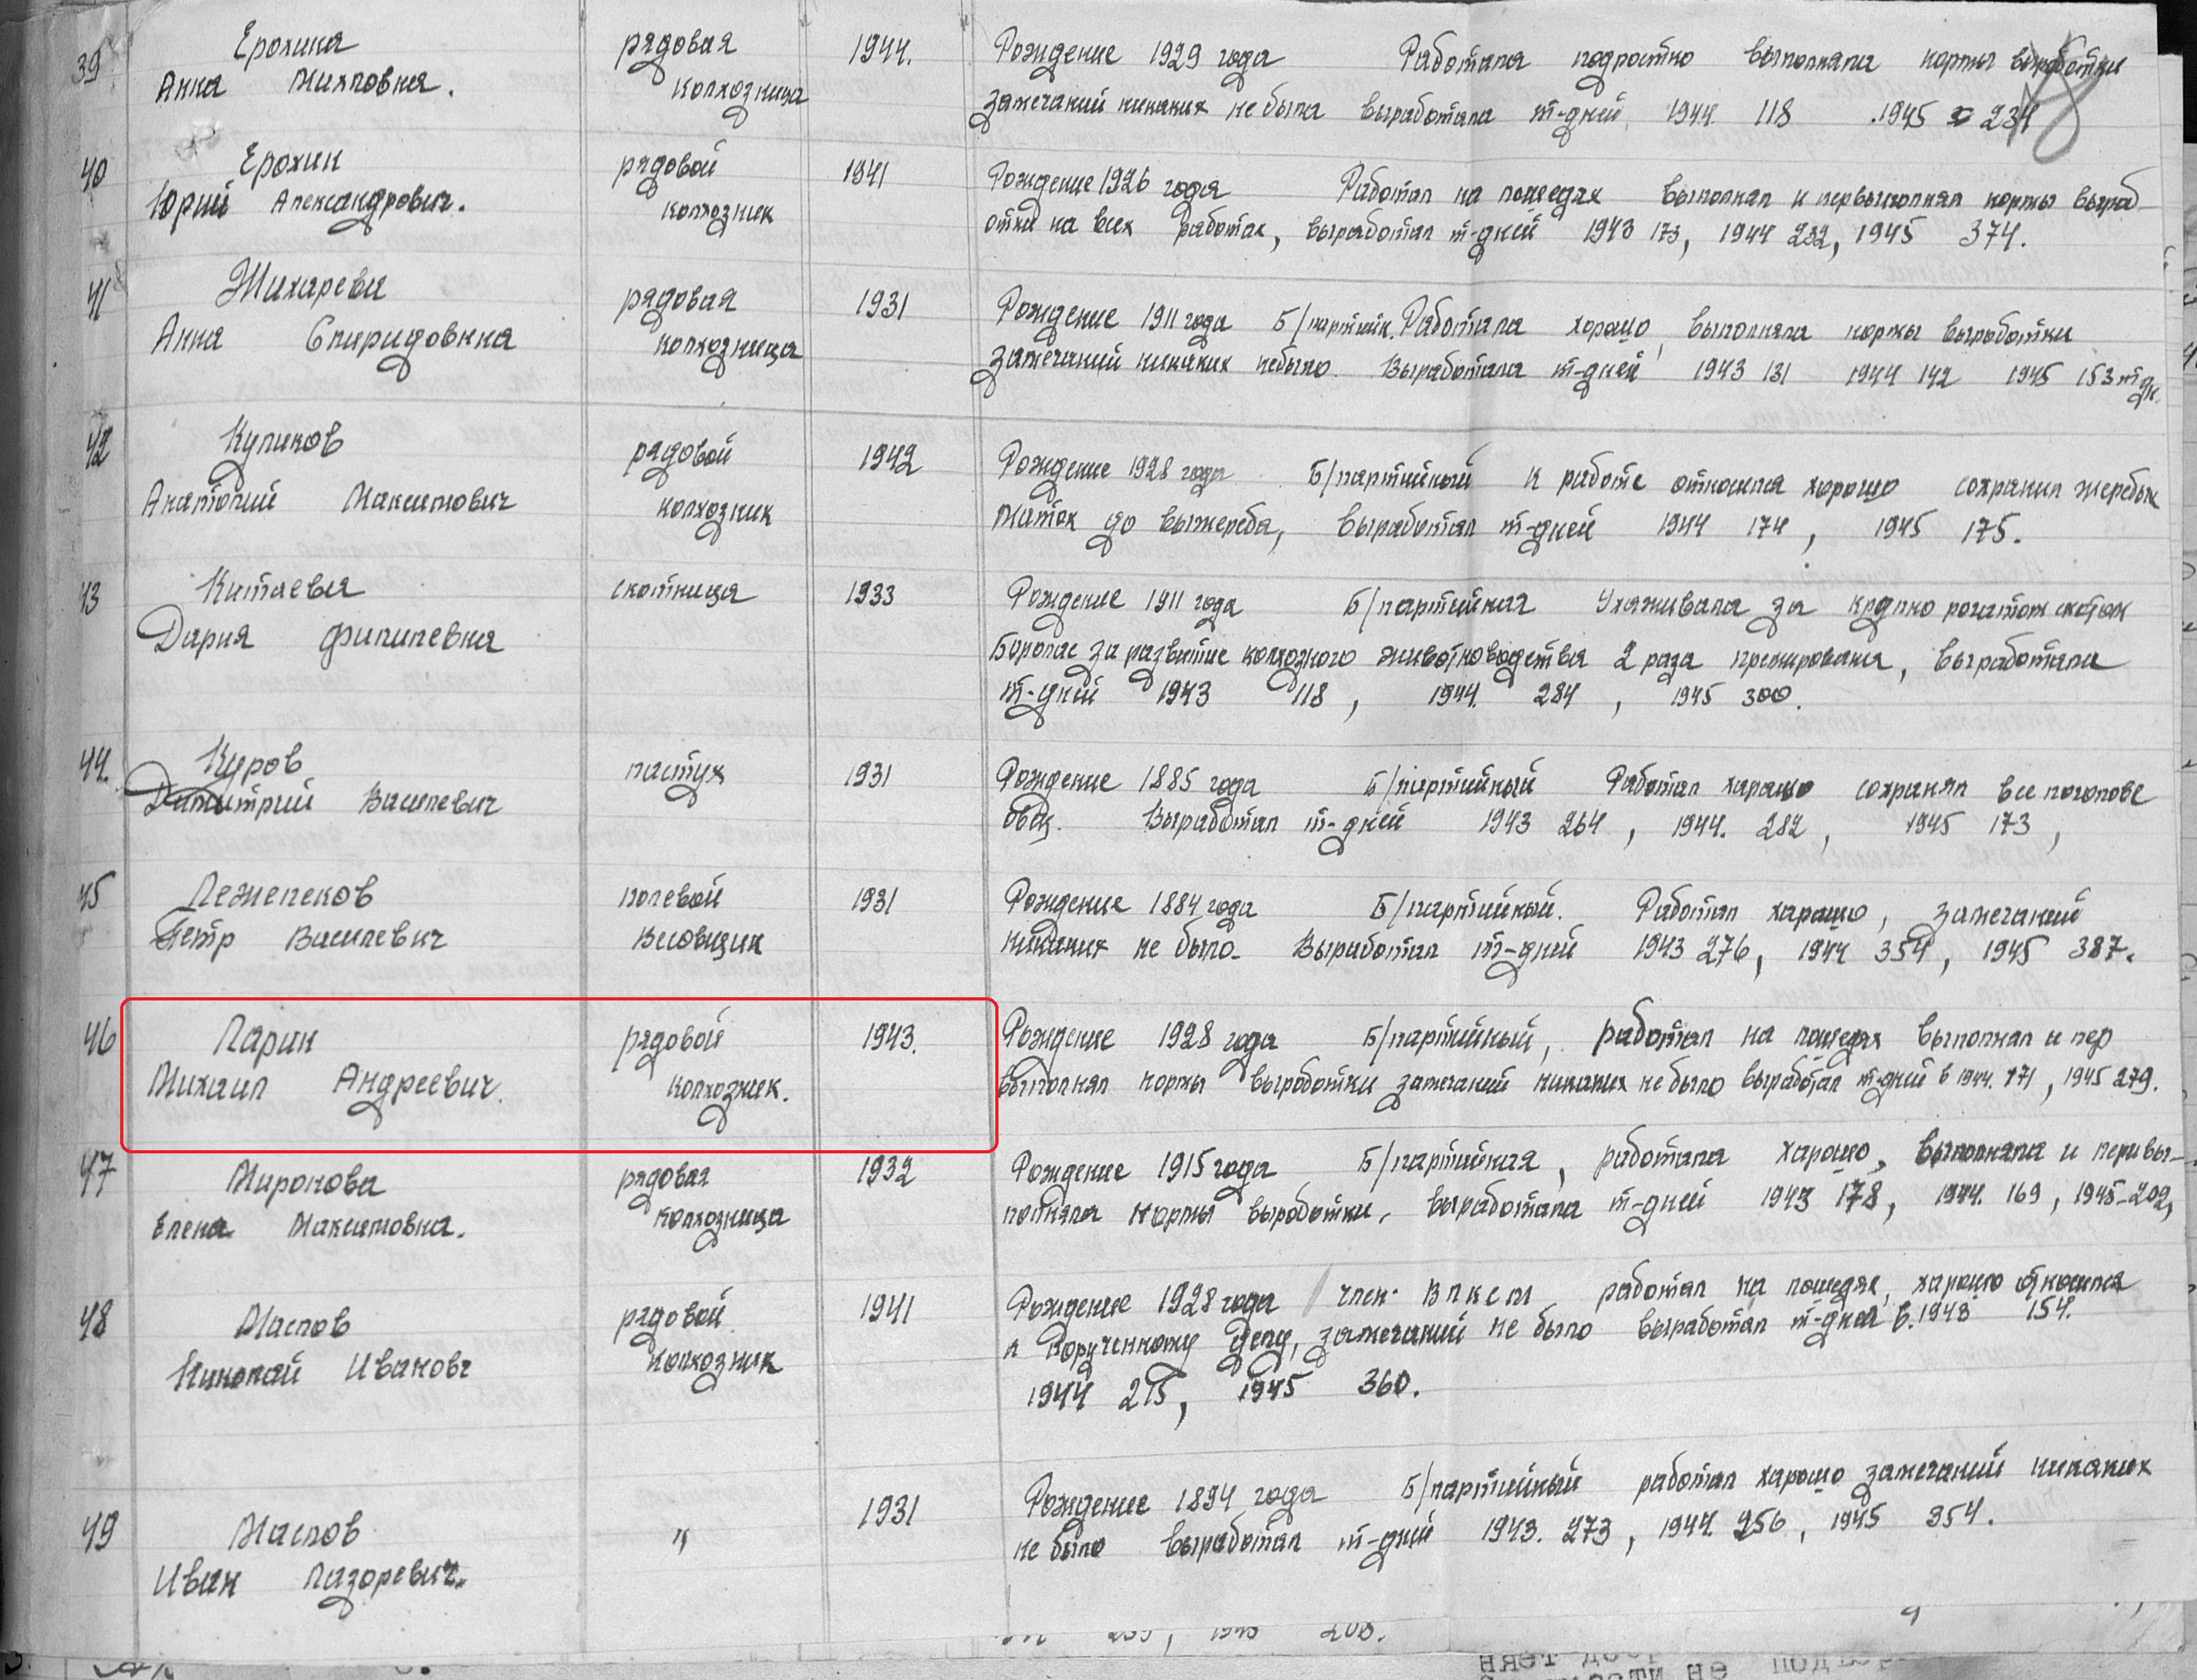 39 Ерохина рядовая 1944. Рождение 1929 года Работала подростко выполняла нормы выработки
Анна колхозница замечаний никаких не была выработала т-дней 1944 118 .1945 234
40 Ерохин рядовой 1941 Рождение 1926 года Работал на лошедях выполнял и первыполнял нормы выраб
Юрий Александрович. колхозник отки на всех работах, выработал т-дней 1943 173, 1944 232, 1945 374.
41 Жихарева рядовая 1931 Рождение 1911 года Б/партийн. Работала хорошо, выполняла нормы выработки
Анна Спиридовкна колхозница замечаний никаких небыло. Выработала т-дней 1943 131 1944 142 1945 153 т дн.
42 Куликов рядовой 1942 Рождение 1928 года Б/партийный К работе относился хорошо сохранил жеребых
Анатолий Максимович колхозник маток до выжереба, выработал т-дней 1944 174, 1945 175.
43 Китаева скотница 1933 Рождение 1911 года Б/партийная Ухаживала за крупно рогатом скотом
Дария Филипевна Боролас за развитие колхозного животноводства 2 раза премирована, выработала
т-дней 1943 118, 1944. 284, 1945 300.
44. Куров пастух 1931 Рождение 1885 года Б/партийный Работал харашо сохранял все поголове
Димитрий Василевич овец. Выработал т-дней 1943 264, 1944. 282, 1945 173,
45 Лежепеков полевой 1931 Рождение 1884 года Б/партийный. Работал харашо, замечаний
Петр Василевич весовщик никаких не было. Выработал т-дней 1943 276, 1944 354, 1945 387.
46 Ларин рядовой 1943. Рождение 1928 года Б/партийный, работал на лошедях выполнял и пер
Михаил Андреевич. колхозник. выполнял нормы выработки замечаний никаких не было выработал т-дней в 1944. 171, 1945 279.
47 Миронова рядовая 1932 Рождение 1915 года Б/партийная, работала харашо, выполняла и перивы-
Елена Максимовна. колхозница полняла нормы выработки, выработала т-дней 1943 178, 1944. 169, 1945-202,
48 Маслов рядовой 1941 Рождение 1928 года член ВЛКСМ работал на лошедях, харашо относился
Николай Иванович колхозник к порученному делу, замечаний не было выработал т-дней в.1943 154.
1944 215, 1945 360.
49 Маслов " 1931 Рождение 1894 года Б/партийный работал харашо замечаний никаких
Иван Лазоревич. не было выработал т-дней 1943. 273, 1944. 256, 1945 354.
208.